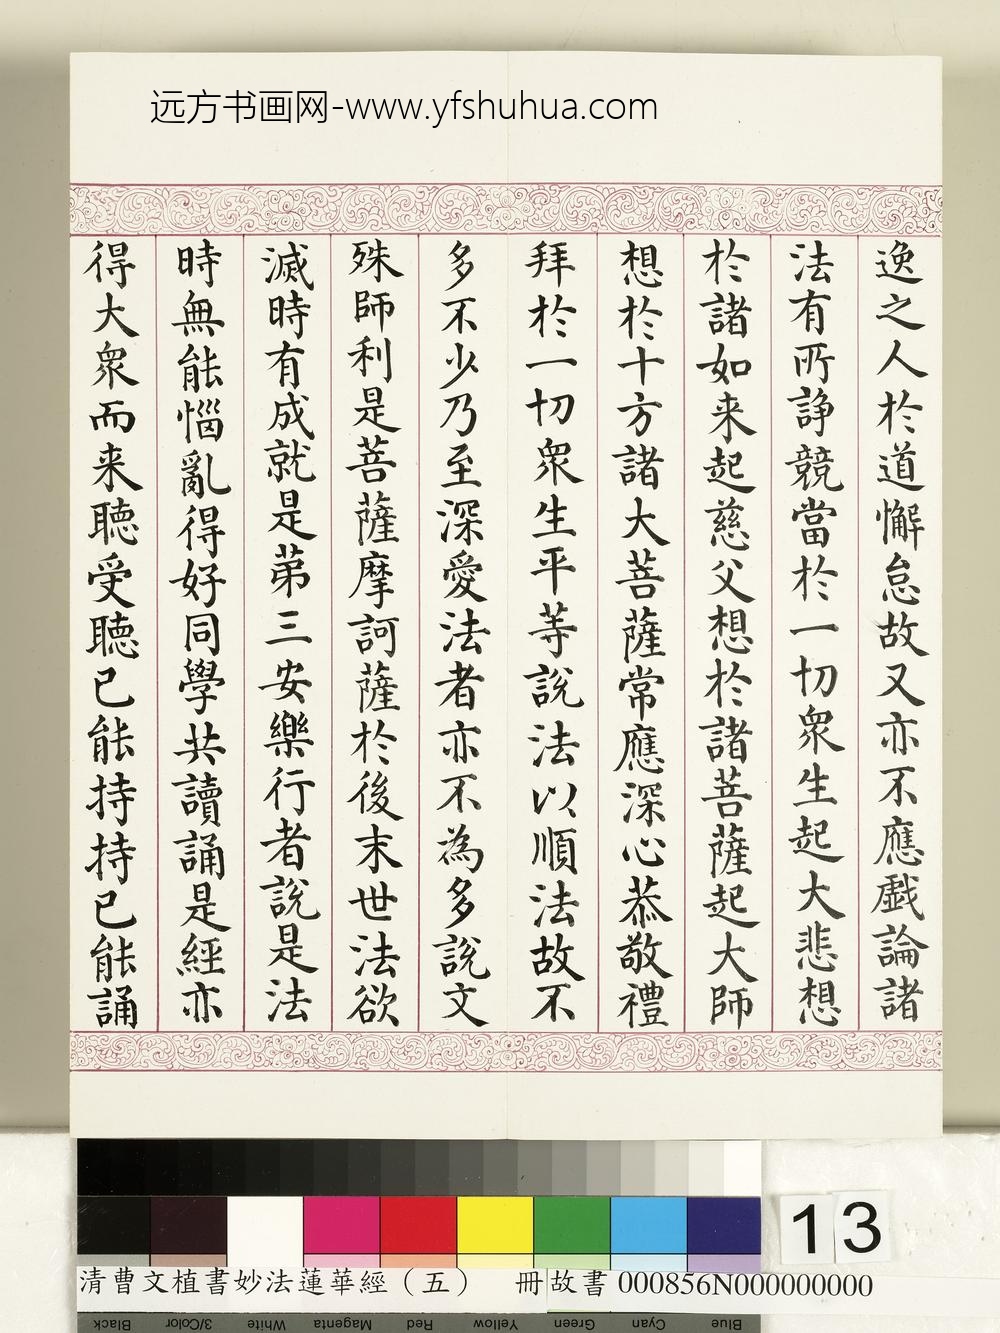 远方书画网-www.yfshuhua.com
逸之人於道懈怠故又亦不應戲論諸
法有所諍競當於一切眾生起大悲想
於諸如来起慈父想於諸菩薩起大師
想於十方諸大菩薩常應深心恭敬禮
拜於一切眾生平等說法以順法故不
多不少乃至深愛法者亦不為多說文
殊師利是菩薩摩訶薩於後末世法欲
滅時有成就是第三安樂行者說是法
時無能惱亂得好同學共讀誦是經亦
得大眾而来聽受聽已能持持已能誦
13
清曹文植書妙法蓮華經（五） 冊 故書 000856N000000000
Black
3/Color
White
Magenta
Red
Yellow
Green
Cyan
Blue